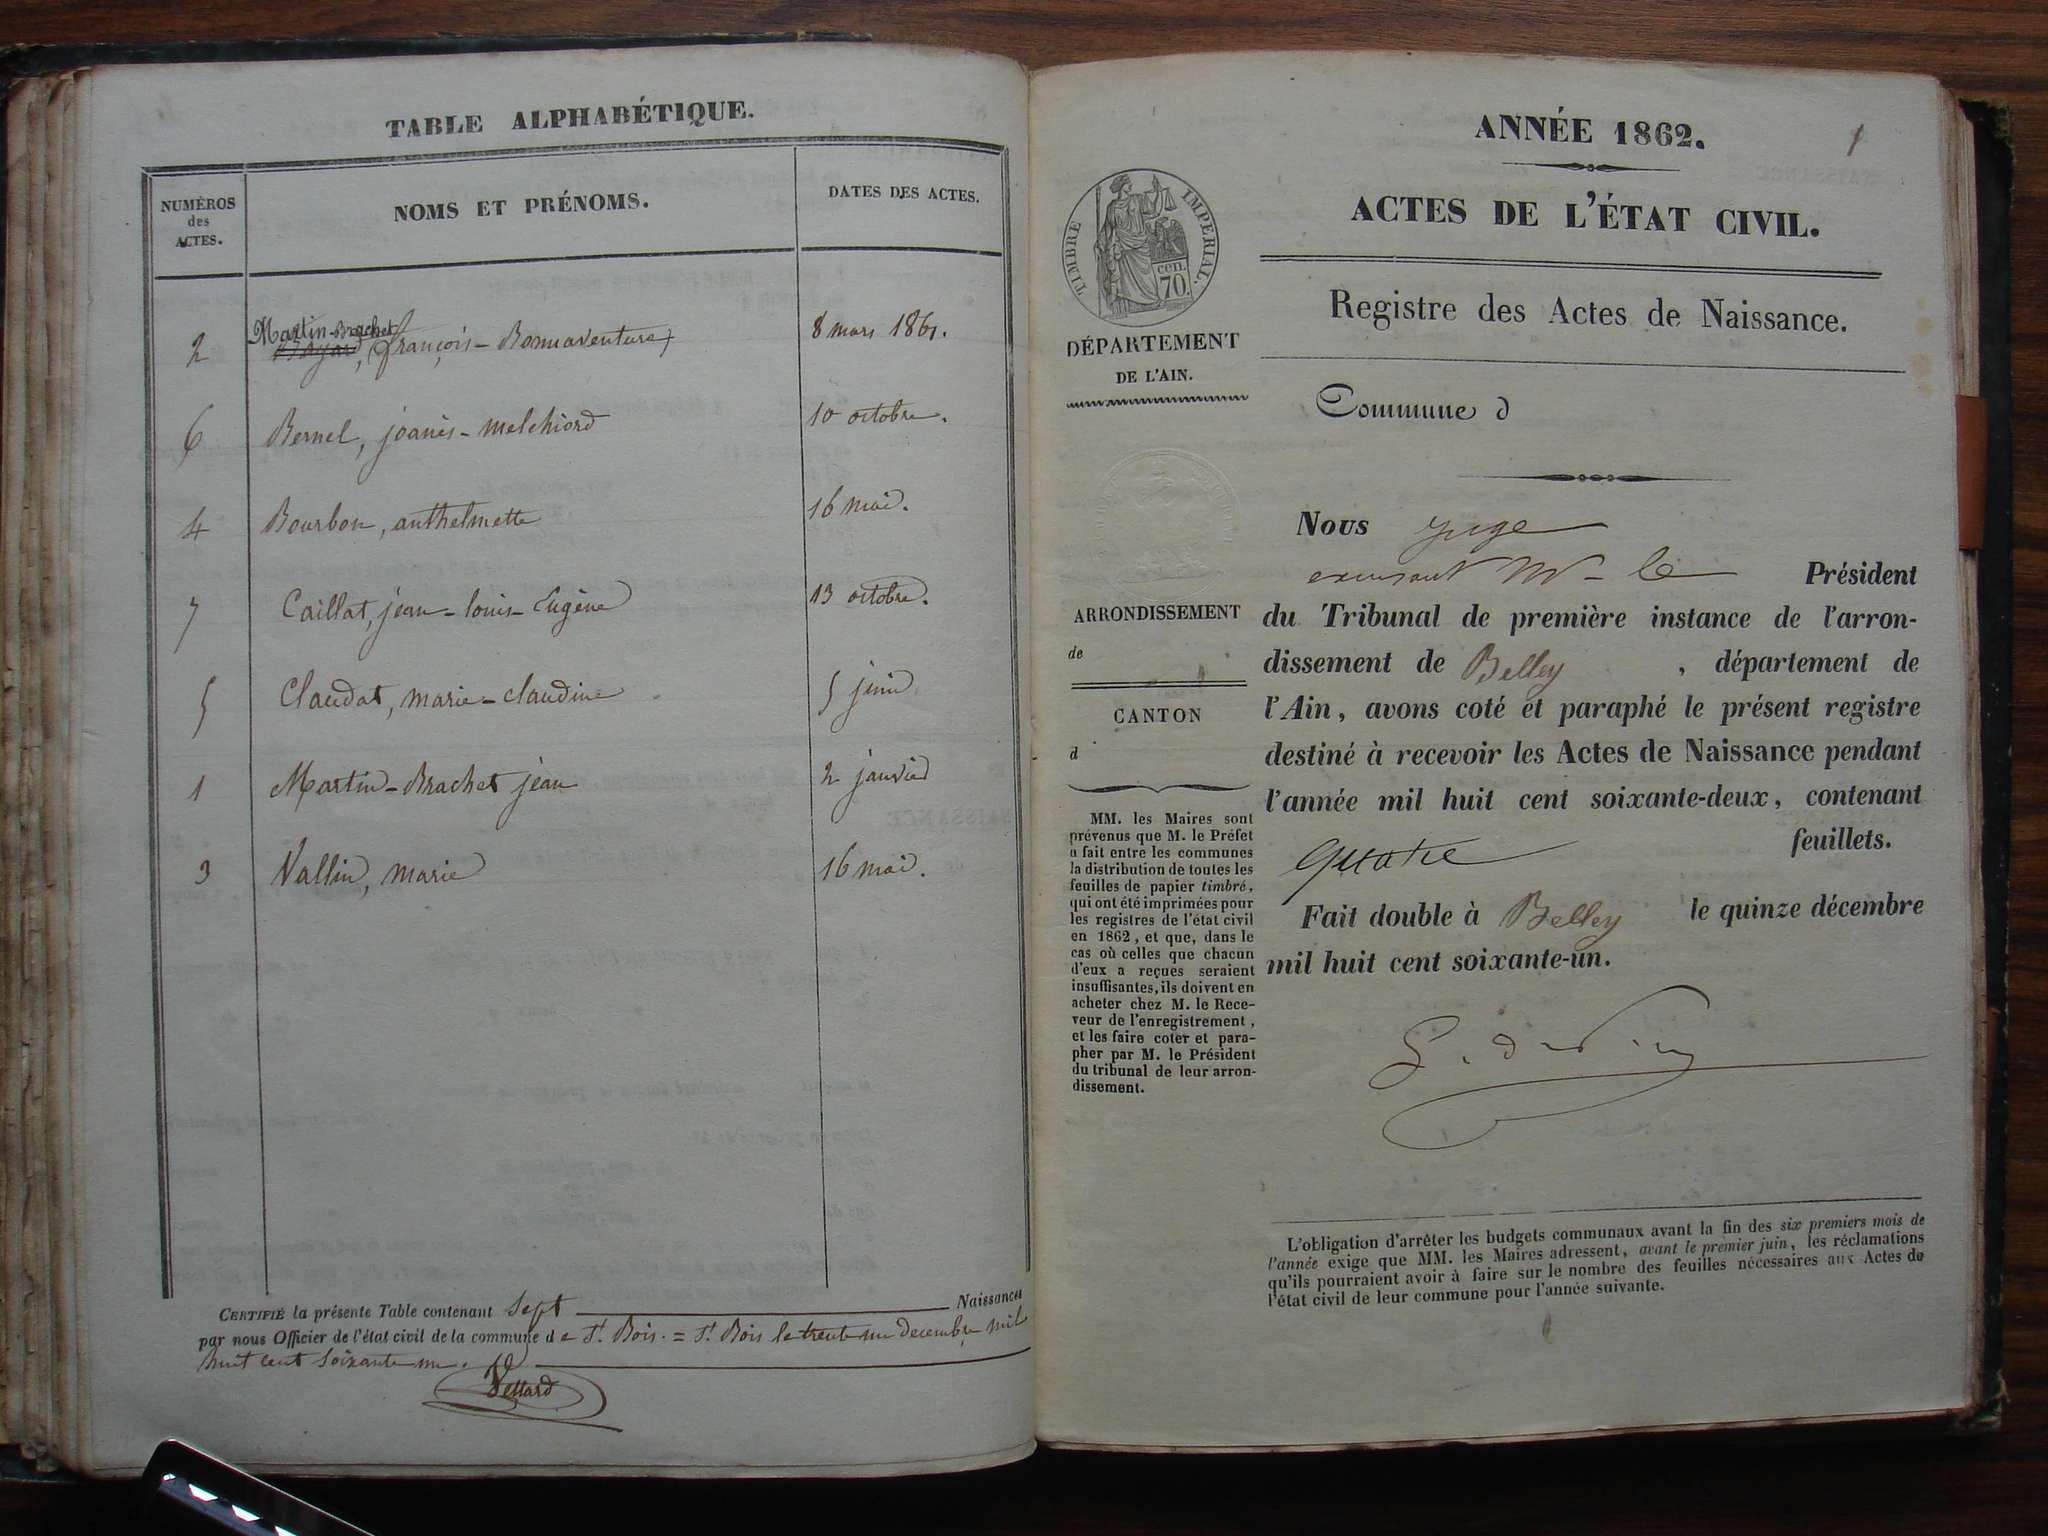 TABLE ALPHABÉTIQUE.
NUMÉROS
des
ACTES.
NOMS ET PRÉNOMS.
DATES DES ACTES.
Martin-Brachet
2 Bayard, françois-Bonnaventure 8 mars 1861.
6 Bernel, joanès-melchiord 10 octobre.
4 Bourbon, anthelmette 16 mai.
7 Caillat, jean-louis-Eugène 13 octobre.
5 Claudat, marie-claudine 5 juin
1 Martin-Brachet jean 2 janvier
3 Vallin, marie 16 mai.
CERTIFIÉ la présente Table contenant Sept Naissances
par nous Officier de l'état civil de la commune de St. Bois. = St. Bois le trente un décembre mil
huit cent soixante un.
1
ANNÉE 1862.
ACTES DE L'ÉTAT CIVIL.
Registre des Actes de Naissance.
TIMBRE IMPERIAL.
cen.
70.
DÉPARTEMENT
DE L'AIN.
Commune d
ARRONDISSEMENT
de
CANTON
d
MM. les Maires sont
prévenus que M. le Préfet
a fait entre les communes
la distribution de toutes les
feuilles de papier timbré,
qui ont été imprimées pour
les registres de l'état civil
en 1862, et que, dans le
cas où celles que chacun
d'eux a reçues seraient
insuffisantes, ils doivent en
acheter chez M. le Rece-
veur de l'enregistrement,
et les faire coter et para-
pher par M. le Président
du tribunal de leur arron-
dissement.
Nous juge
Mr le Président
du Tribunal de première instance de l'arron-
dissement de Belley, département de
l'Ain, avons coté et paraphé le présent registre
destiné à recevoir les Actes de Naissance pendant
l'année mil huit cent soixante-deux, contenant
quatre feuillets.
Fait double à Belley le quinze décembre
mil huit cent soixante-un.
L'obligation d'arrêter les budgets communaux avant la fin des six premiers mois de
l'année exige que MM. les Maires adressent, avant le premier juin, les réclamations
qu'ils pourraient avoir à faire sur le nombre des feuilles nécessaires aux Actes de
l'état civil de leur commune pour l'année suivante.